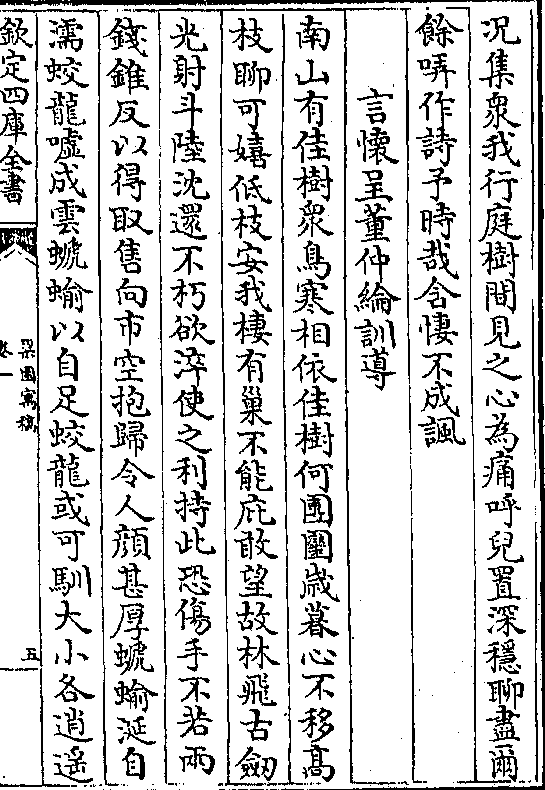 况集衆我行庭樹間見之心為痛呼兒置深穩聊盡爾
餘哢作詩予時哉含悽不成諷
言懷呈董仲綸訓導
南山有佳樹衆鳥寒相依佳樹何團圞歲暮心不移高
枝聊可嬉低枝安我棲有巢不能庇敢望故林飛古劔
光射斗陸沈還不朽欲淬使之利持此恐傷手不若兩
錢錐反以得取售向市空抱歸令人顔甚厚螔蝓涎自
濡蛟龍嘘成雲螔蝓以自足蛟龍或可馴大小各逍遥
欽定四庫全書
梁園寓稿
卷一
五